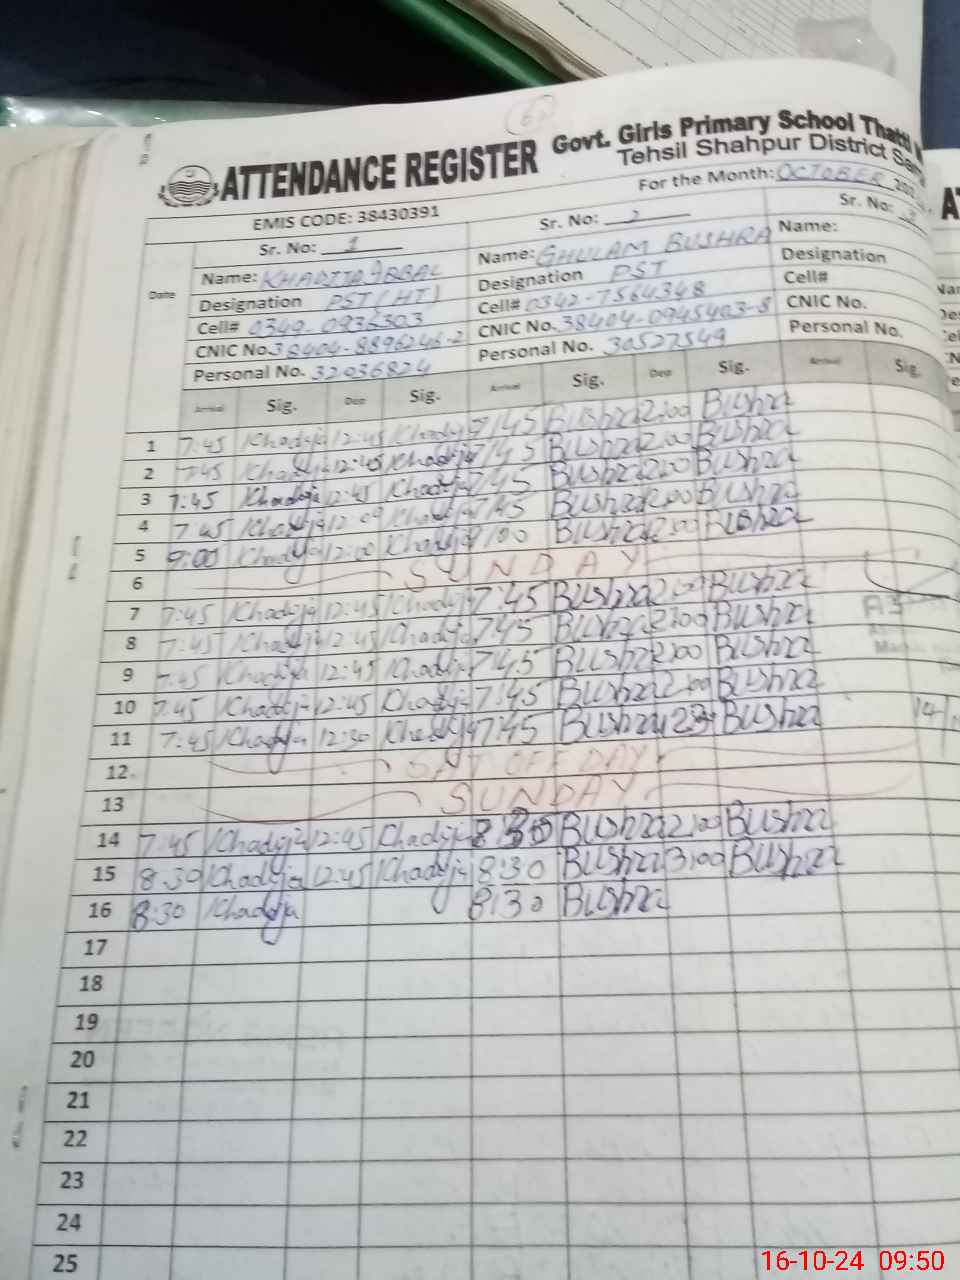 ATTENDANCE REGISTER
Govt. Girls Primary School
Tehsil Shahpur District
EMIS CODE: 38430391
For the Month: OCTOBER
Date
Sr. No: 1
Name: KHADIJA IQBAL
Designation PST (HT)
Cell# 0349-0936303
CNIC No. 38404-8896246-2
Personal No. 32036824
Sr. No: 2
Name: GHULAM BUSHRA
Designation PST
Cell# 0342-7564348
CNIC No. 38404-0945403-8
Personal No. 30527549
Sr. No:
Name:
Designation
Cell#
CNIC No.
Personal No.
Arrival Sig. Dep Sig. Arrival Sig. Dep Sig. Arrival Sig.
1 7:45 Khadija 12:45 Khadija 7:45 Bushra 2:00 Bushra
2 7:45 Khadija 12:45 Khadija 7:45 Bushra 2:00 Bushra
3 7:45 Khadija 12:45 Khadija 7:45 Bushra 2:00 Bushra
4 7:45 Khadija 12 Khadija 7:45 Bushra 2:00 Bushra
5 9:00 Khadija 12:00 Khadija 9:00 Bushra 2:00 Bushra
6 SUNDAY
7 7:45 Khadija 12:45 Khadija 7:45 Bushra 2:00 Bushra
8 7:45 Khadija 12:45 Khadija 7:45 Bushra 2:00 Bushra
9 7:45 Khadija 12:45 Khadija 7:45 Bushra 2:00 Bushra
10 7:45 Khadija 12:45 Khadija 7:45 Bushra 2:00 Bushra
11 7:45 Khadija 12:30 Khadija 7:45 Bushra Bushra
12 SAT OFF DAY
13 SUNDAY
14 7:45 Khadija 12:45 Khadija 8:30 Bushra 2:00 Bushra
15 8:30 Khadija 12:45 Khadija 8:30 Bushra 3:00 Bushra
16 8:30 Khadija 8:30 Bushra
17
18
19
20
21
22
23
24
25
16-10-24 09:50